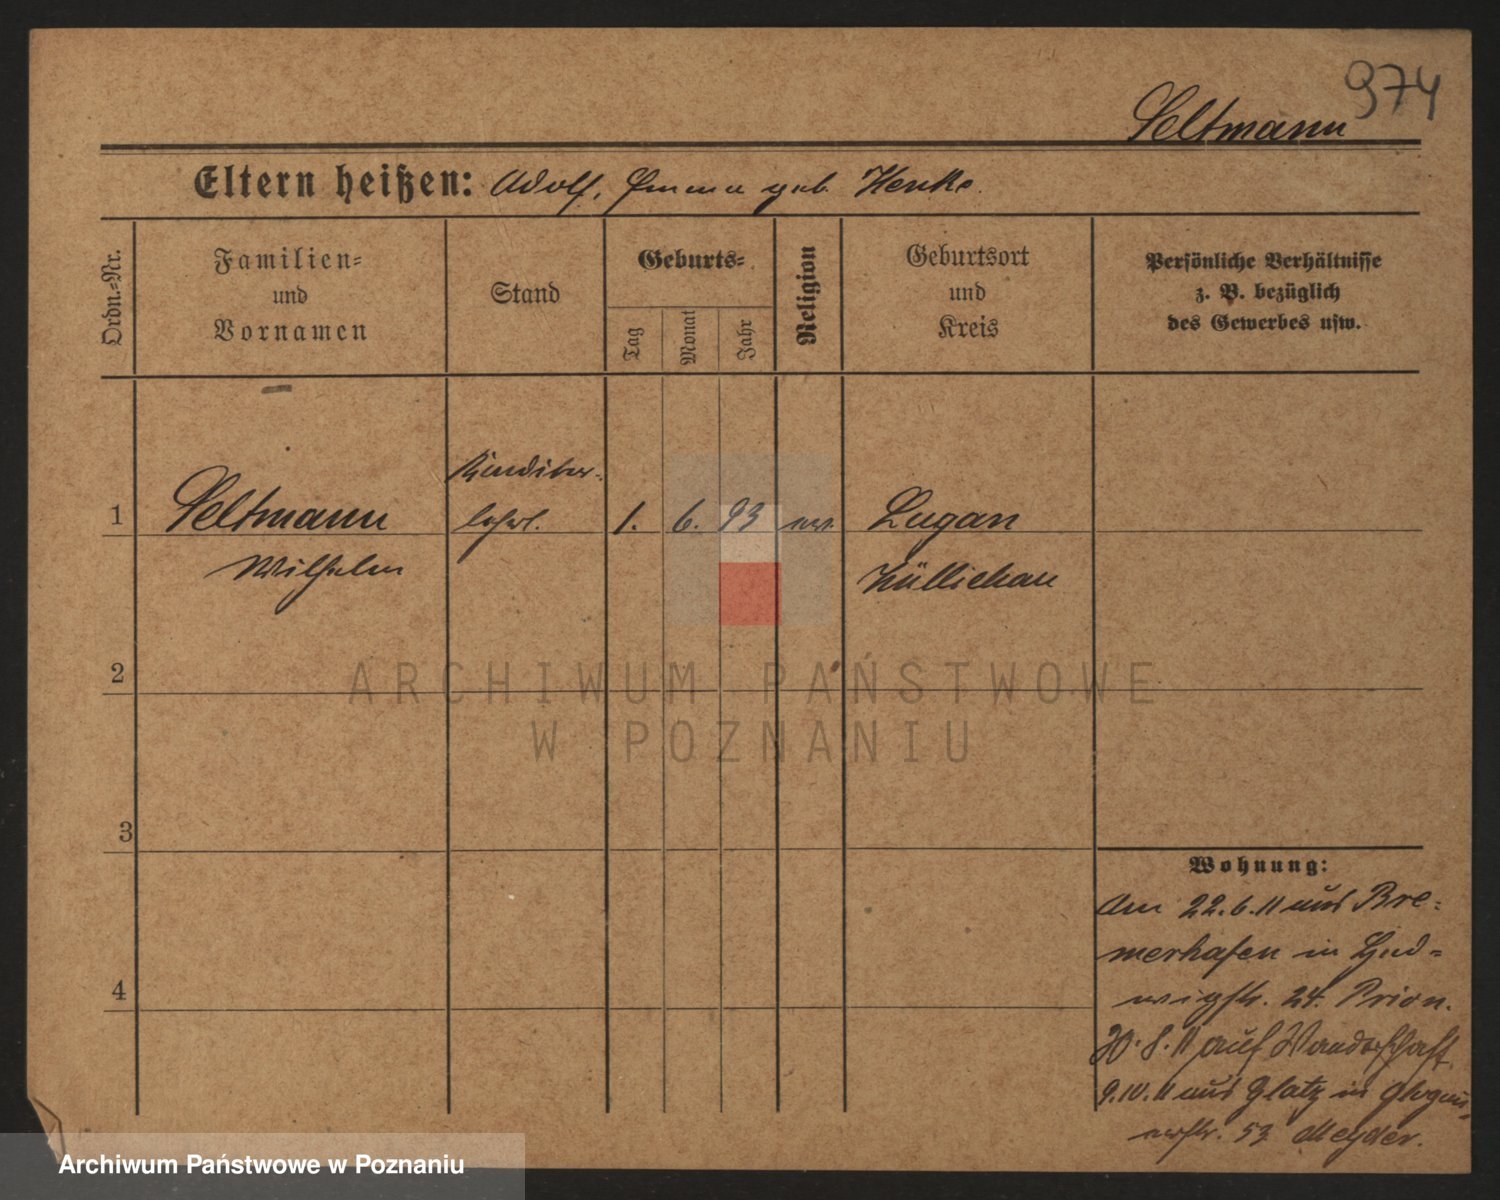 974
Seltmann
Eltern heißen: Adolf, Emma geb. Henke.
Ordn.-Nr.
Familien-
und
Vornamen
Stand
Geburts-
Tag
Monat
Jahr
Religion
Geburtsort
und
Kreis
Persönliche Verhältnisse
z. B. bezüglich
des Gewerbes usw.
1
Seltmann
Wilhelm
Konditor-
lehrl.
1. 6. 93
ev.
Lugan
Züllichau
2
3
4
Wohnung:
Am 22.6.11 aus Bre-
merhafen in Hed-
wigstr. 24. Prion.
30.8.11 auf Wanderschaft.
9.10.11 aus Glatz in Glogau-
erstr. 53 Meyder.
ARCHIWUM PAŃSTWOWE
W POZNANIU
Archiwum Państwowe w Poznaniu